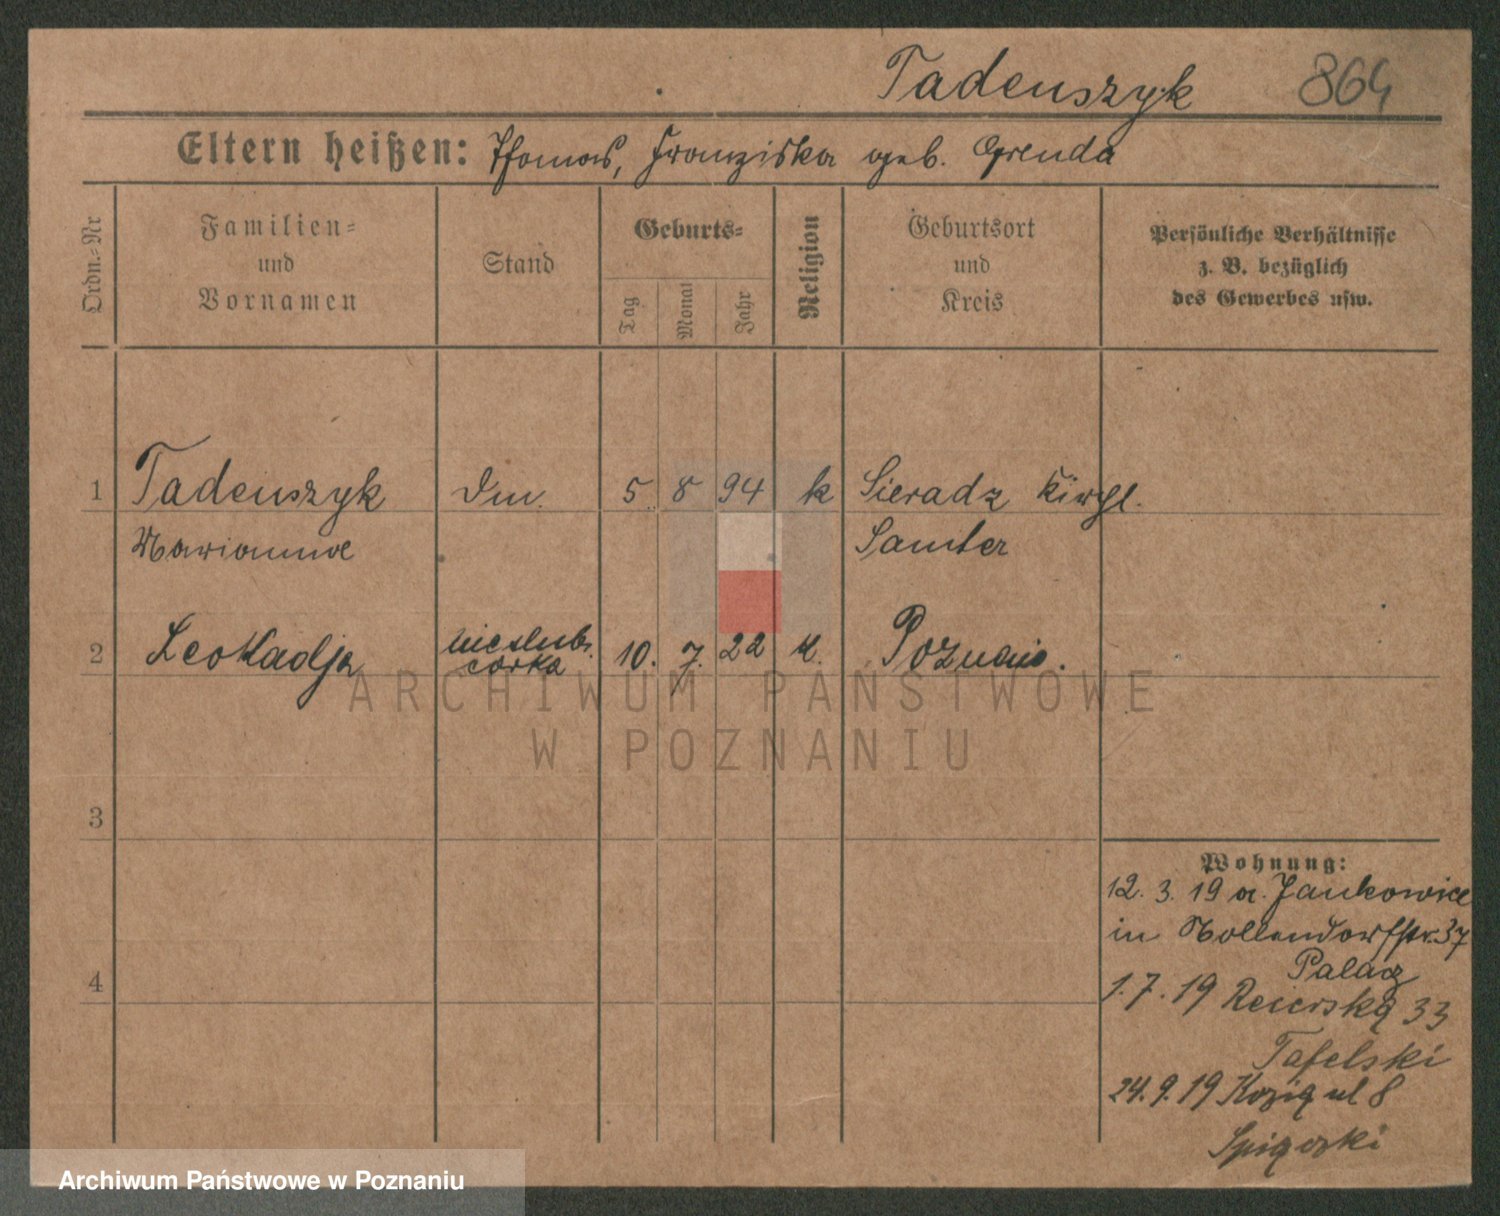 Tadeuszyk 864
Eltern heißen: Thomas, Franziska geb. Grenda
Ordn.-Nr
Familien-
und
Vornamen
Stand
Geburts-
Tag
Monat
Jahr
Religion
Geburtsort
und
Kreis
Persönliche Verhältnisse
z. B. bezüglich
des Gewerbes usw.
1 Tadeuszyk 5 8 94 k Sieradz Kirchl.
Marianne Samter
2 Leokadja nieslub. 10. 7. 22 k. Poznań.
córka
ARCHIWUM PAŃSTWOWE
W POZNANIU
3
4
Wohnung:
12. 3. 19 a. Jankowice
in Nollendorfstr. 37
Palacz
1. 7. 19 33
Tafelski
24. 9. 19 Kozia ul 8
Archiwum Państwowe w Poznaniu